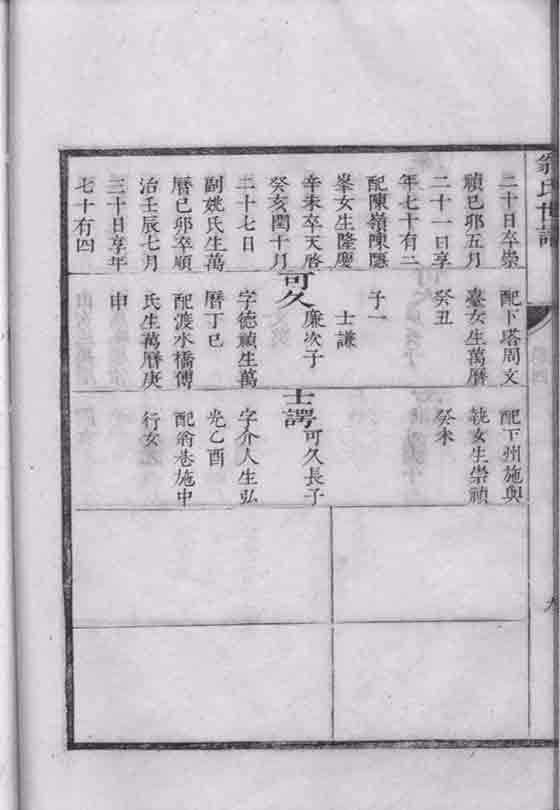 翁氏世譜
二十日卒崇
禎己卯五月
二十一日享
年七十有二
配陳嶺陳隱
峯女生隆慶
辛未卒天啓
癸亥閏十月
二十七日
副姚氏生萬
曆己卯卒順
治壬辰七月
三十日享年
七十有四
配下塔周文
臺女生萬曆
癸丑
子一
士謙
可久
廉次子
字德禎生萬
曆丁巳
配渡水橋傅
氏生萬曆庚
申
配下州施與
競女生崇禎
癸未
士諤
可久長子
字介人生弘
光乙酉
配翁巷施中
行女
九